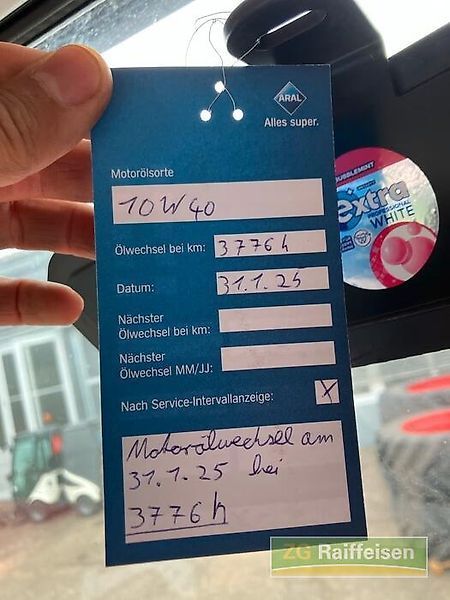 ARAL
Alles super.
Motorölsorte
10W40
Ölwechsel bei km: 3776 h
Datum: 31.1.25
Nächster
Ölwechsel bei km:
Nächster
Ölwechsel MM/JJ:
Nach Service-Intervallanzeige: X
Motorölwechsel am
31.1.25 bei
3776 h
BUBBLEMINT
extra
PROFESSIONAL
WHITE
ZG Raiffeisen